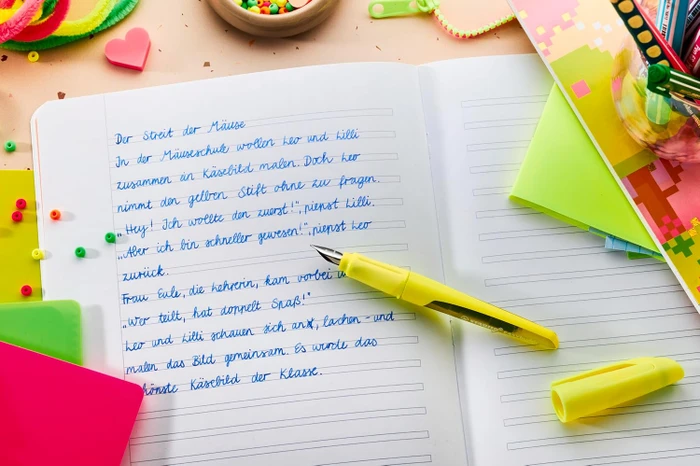 Der Streit der Mäuse
In der Mäuseschule wollen Leo und Lilli
zusammen an Käsebild malen. Doch Leo
nimmt den gelben Stift ohne zu fragen.
„Hey! Ich wollte den zuerst!", piepst Lilli.
„Aber ich bin schneller gewesen!", piepst Leo
zurück.
Frau Eule, die Lehrerin, kam vorbei
„Wer teilt, hat doppelt Spaß!"
Leo und Lilli schauen sich an, lachen - und
malen das Bild gemeinsam. Es wurde das
Käsebild der Klasse.